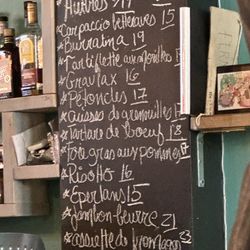 Huîtres
Carpaccio betteraves 15
Burratina 19
* Tartiflette aux morilles
* Gravlax 16
* Pétoncles 17
* Cuisses de grenouilles 17
* Tartare de boeuf 18
* Foie gras aux pommes 17
* Risotto 16
* Eperlans 15
* Jambon-beurre 21
* Cassette de fromages 23